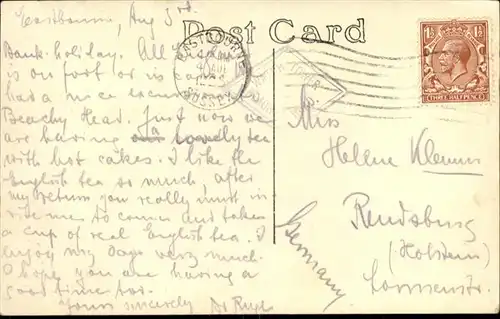 Eastbourne, Aug 3rd.
Post Card
Bank-holiday. All
is on foot or is
had a nice
Beachy Head. Just now we
are having a lovely tea
with hot cakes. I like the
English tea so much, after
my return you really must in
vite me to come and take
a cup of real English tea. I
enjoy my days very much.
I hope you are having a
good time too.
Yours sincerely
EASTBOURNE
SUSSEX
1½ 1½
THREE HALFPENCE
Miss
Hellene
Rendsburg
(Holstein)
Germany